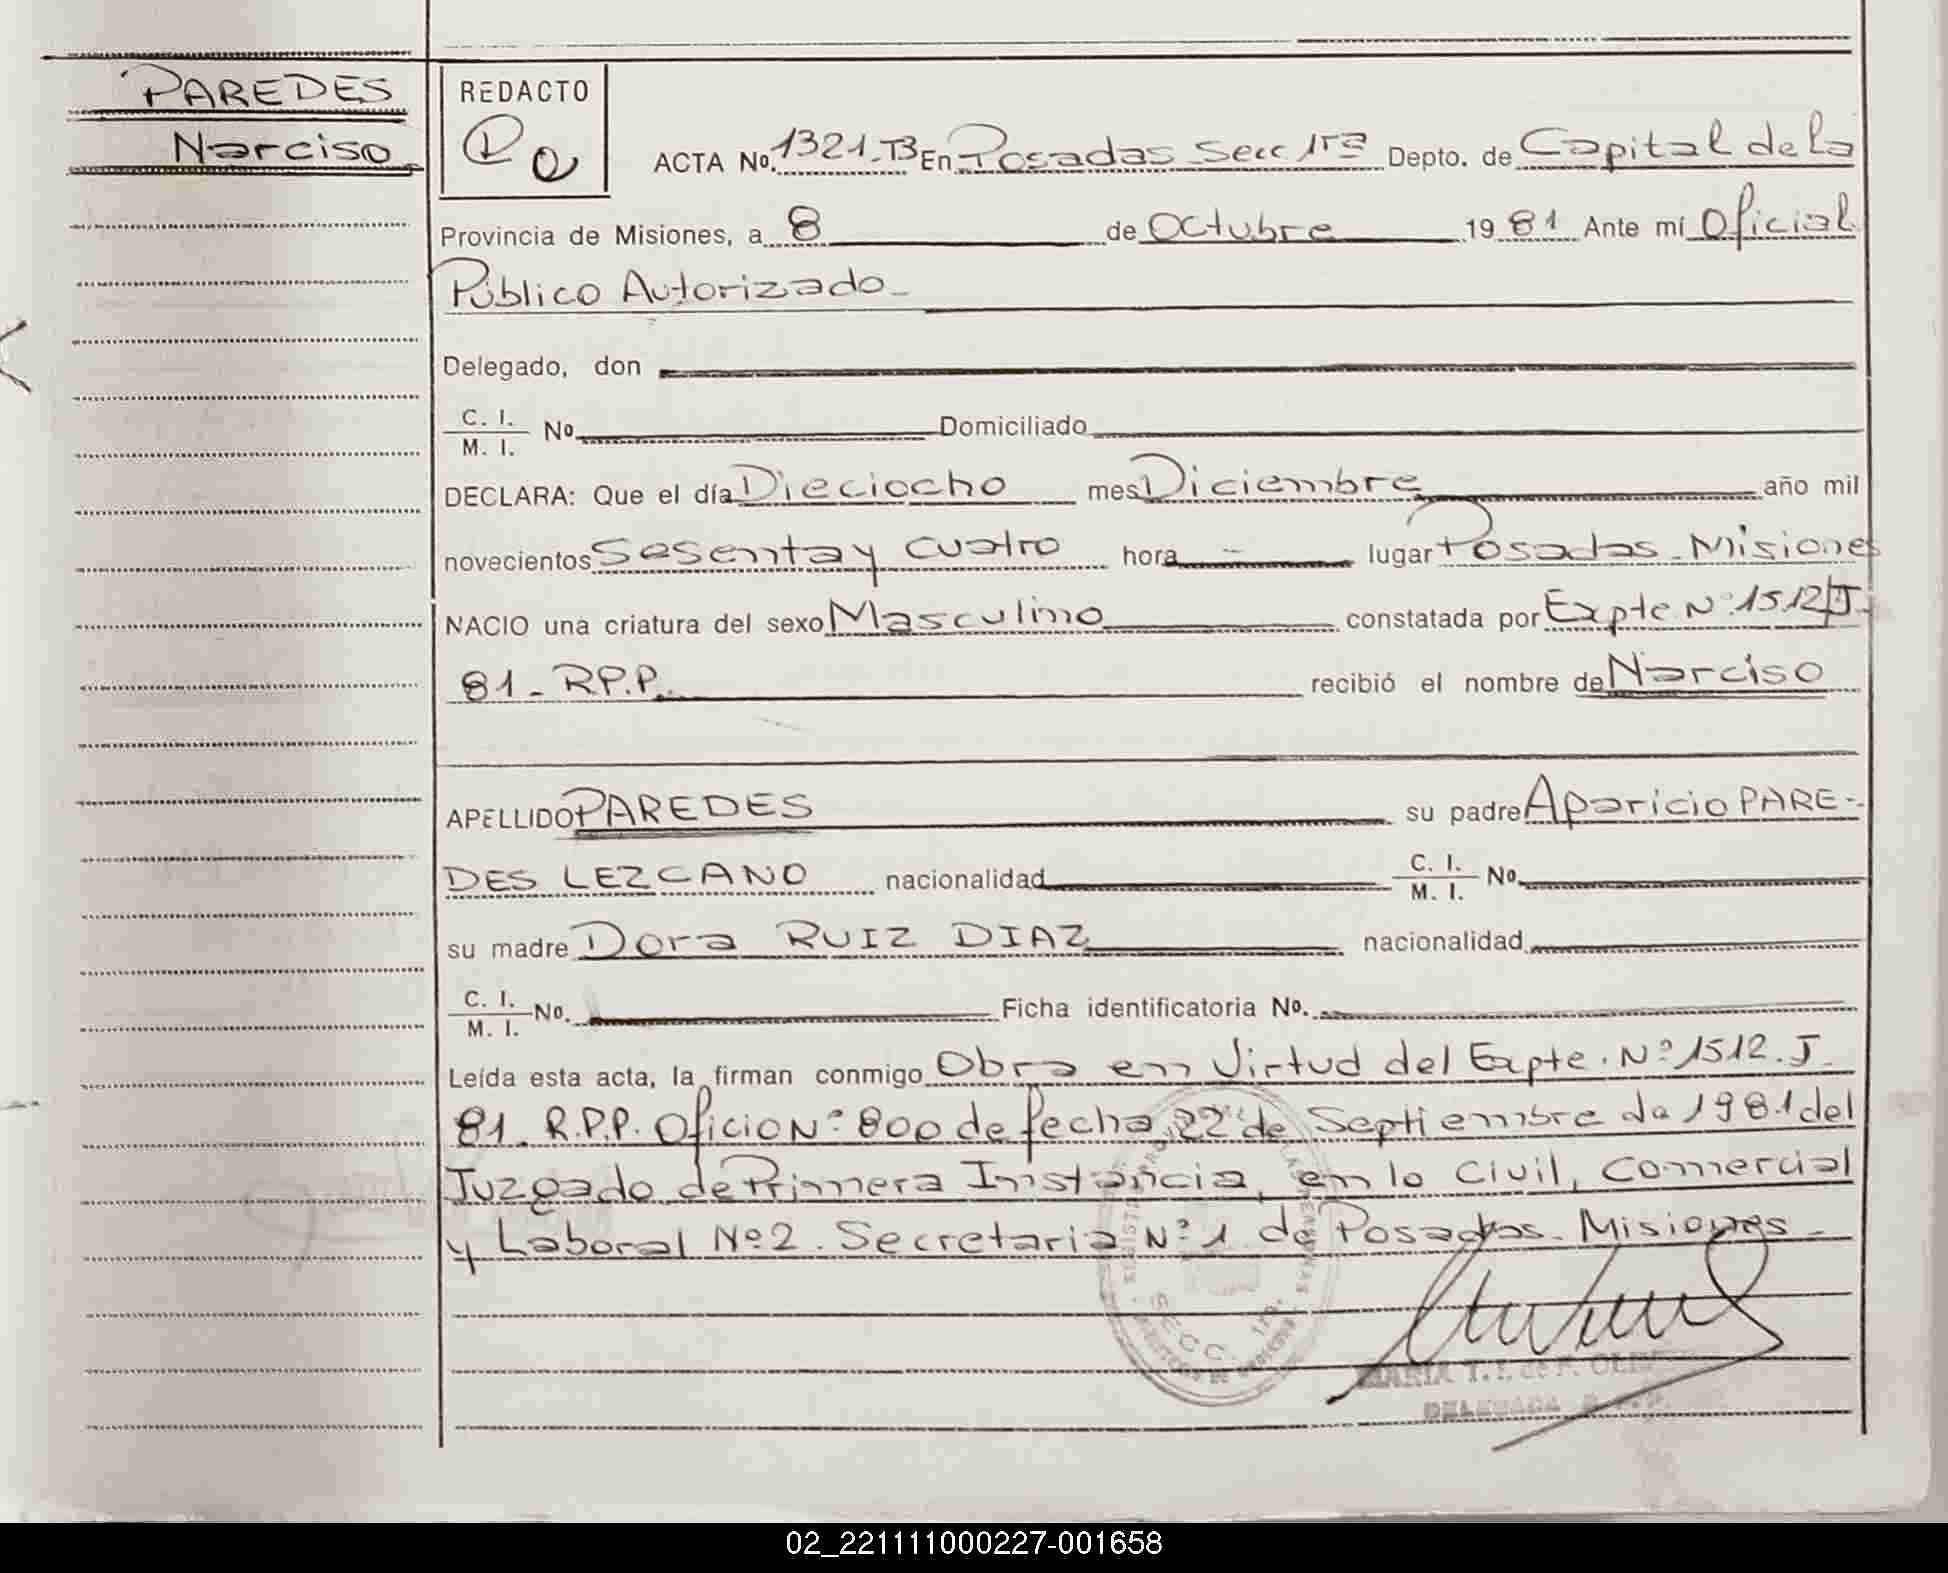 PAREDES
Narciso
REDACTO
ACTA No. 1321-B En Posadas Secc 1ra Depto. de Capital de la
Provincia de Misiones, a 8 de Octubre 1981 Ante mí Oficial
Público Autorizado-
Delegado, don
C. I.
M. I. No Domiciliado
DECLARA: Que el día Dieciocho mes Diciembre año mil
novecientos Sesenta y Cuatro hora - lugar Posadas-Misiones
NACIO una criatura del sexo Masculino constatada por Expte Nº 1512/J-
81-R.P.P. recibió el nombre de Narciso
APELLIDO PAREDES su padre Aparicio PARE-
DES LEZCANO nacionalidad C. I. M. I. No.
su madre Dora RUIZ DIAZ nacionalidad
C. I.
M. I. No. Ficha identificatoria No.
Leída esta acta, la firman conmigo Obra en Virtud del Expte. Nº 1512. J-
81-R.P.P. Oficio Nº 800 de fecha 22 de Septiembre de 1981 del
Juzgado de Primera Instancia, en lo Civil, Comercial
y Laboral Nº 2. Secretaria Nº 1 de Posadas-Misiones-
SECC. 1ra.
MARIA T. I. de F.
DELEGADA
02_221111000227-001658